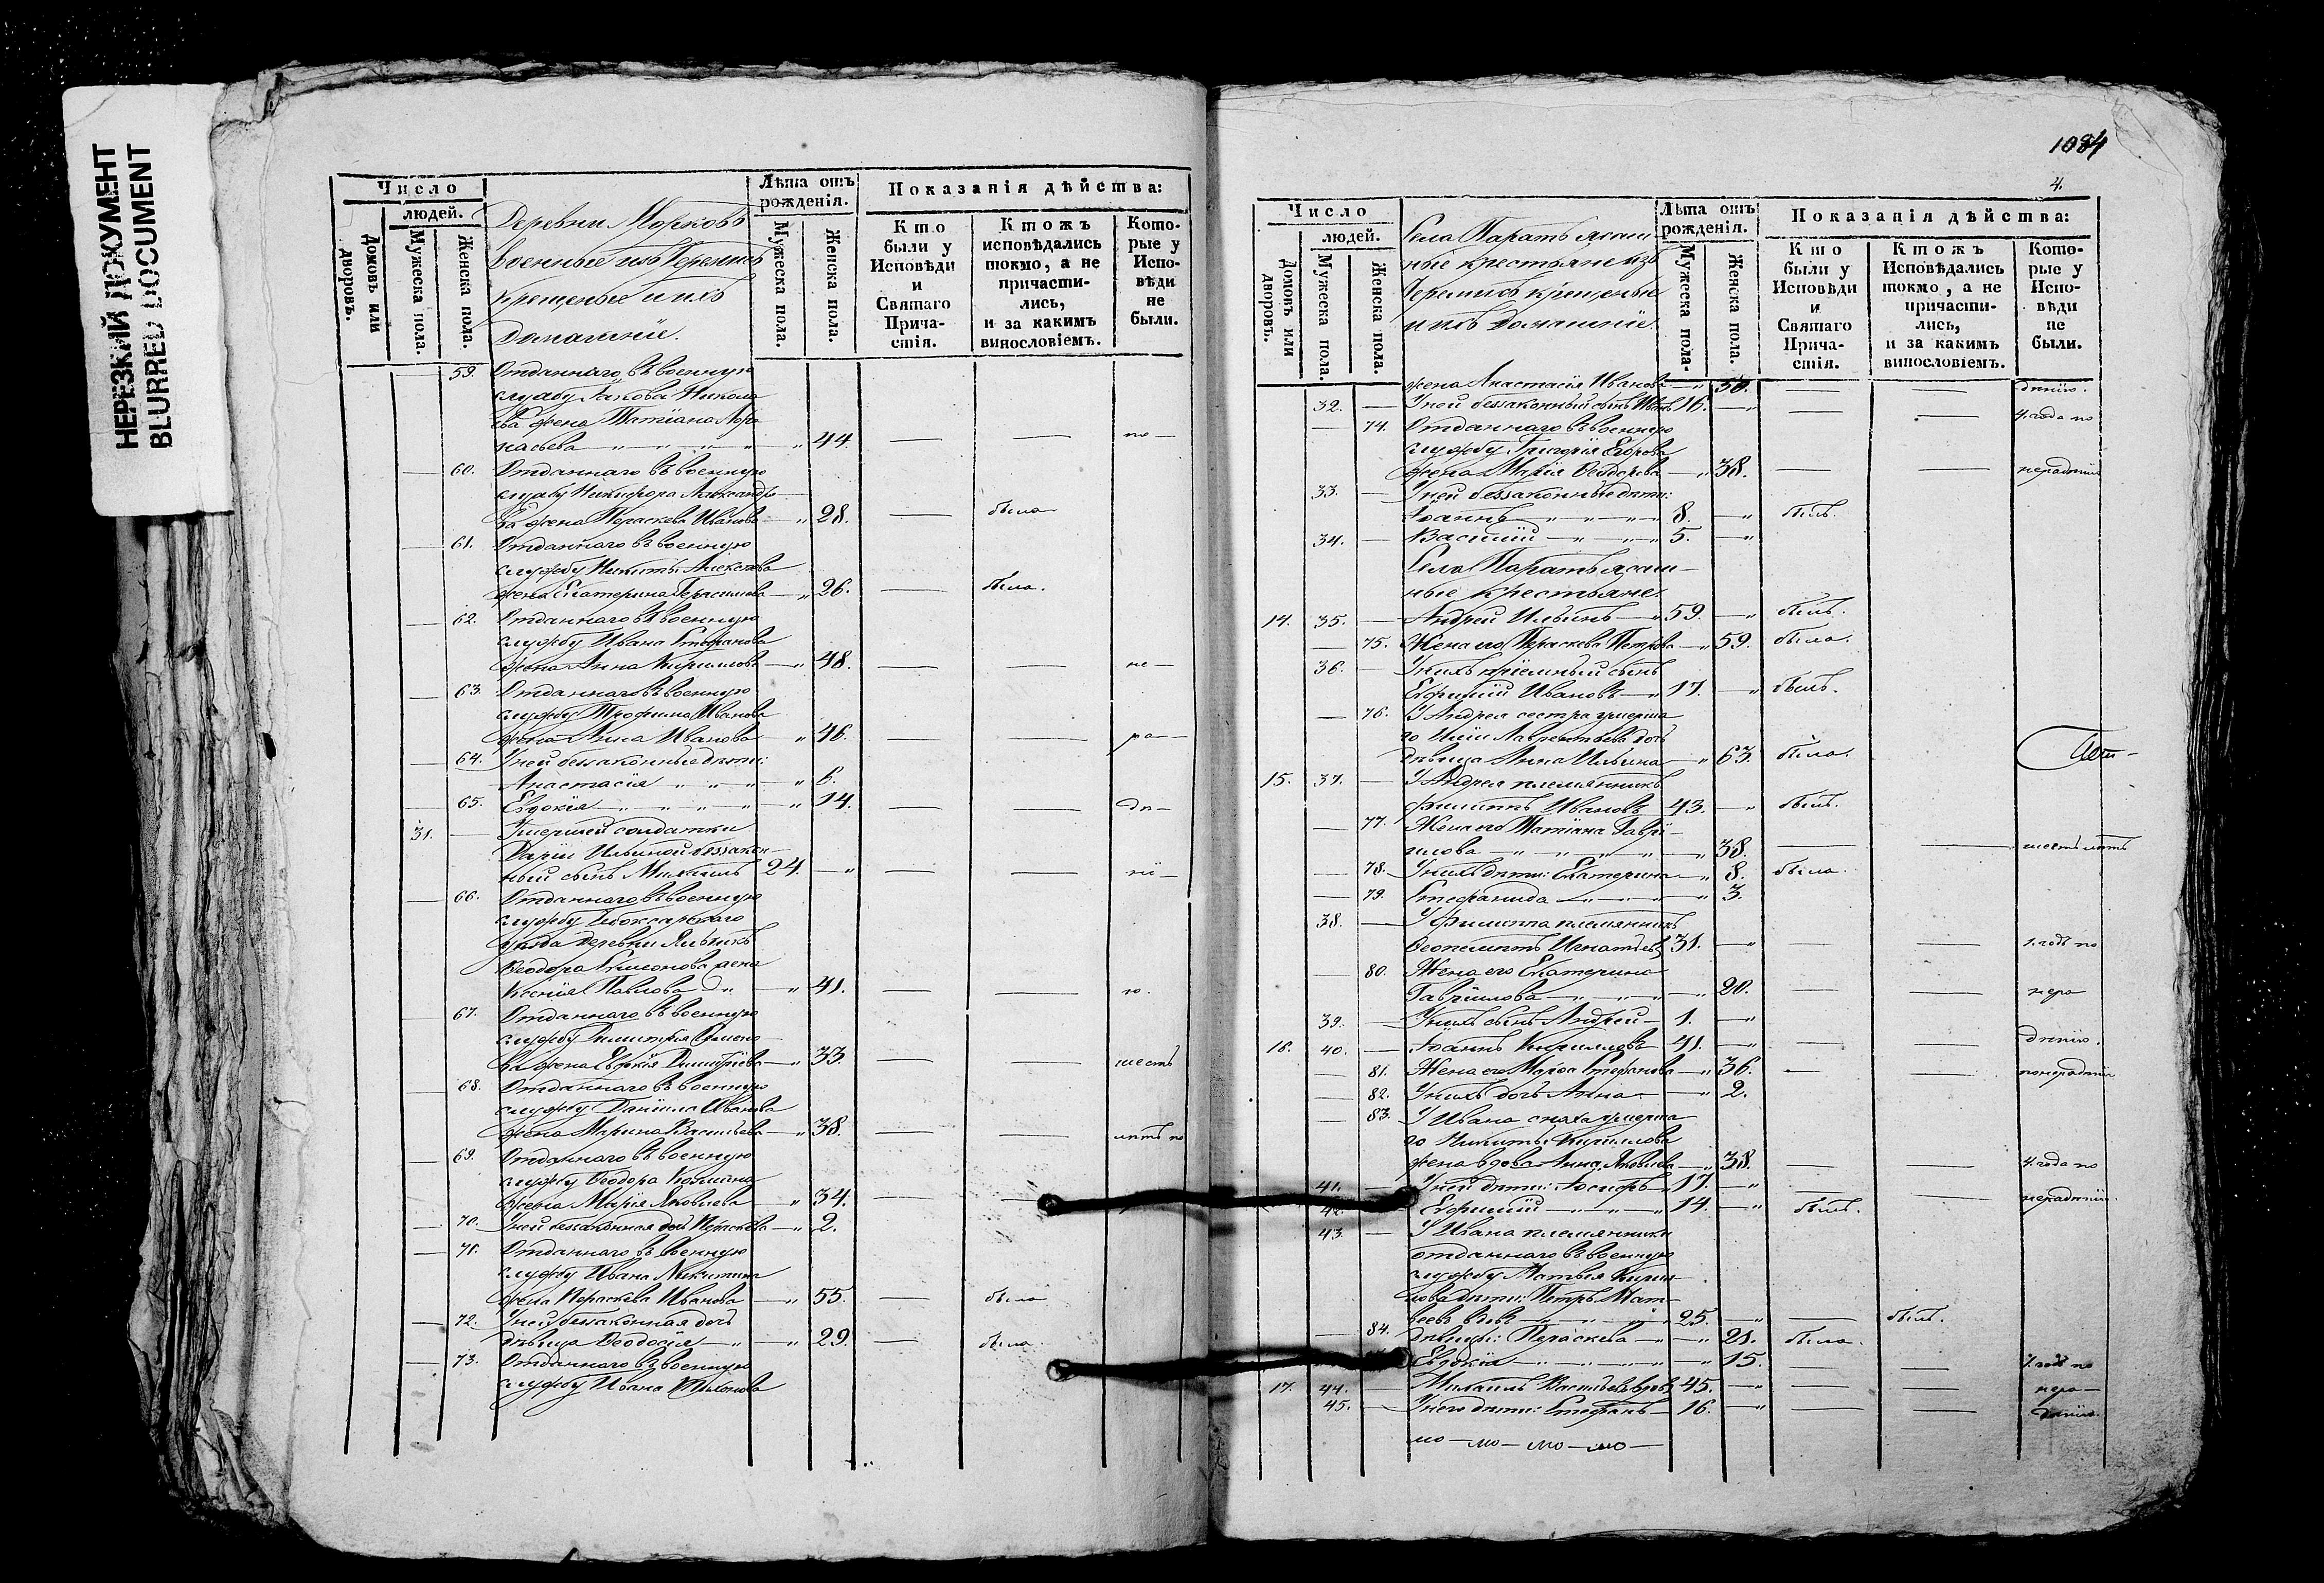 НЕРЕЗКИЙ ДОКУМЕНТ
BLURRED DOCUMENT
Число
людей.
Домовъ или дворовъ.
Мужеска пола.
Женска пола.
Деревни
военные изъ Черемисъ
крещеные и ихъ
домашніе.
Лѣта отъ рожденія.
Мужеска пола.
Женска пола.
Показанія дѣйства:
Кто были у Исповѣди и Святаго Причастія.
Ктожъ исповѣдались токмо, а не причастились, и за какимъ винословіемъ.
Которые у Исповѣди не были.
59. Отданнаго въ военную
службу Іакова Никола
ева жена Татіана Аѳа
насьева 44. по
60. Отданнаго въ военную
службу Никифора Александро
ва жена Параскева Иванова 28. была
61. Отданнаго въ военную
службу Никиты Алексѣева
жена Екатерина Герасимова 26. была.
62. Отданнаго въ военную
службу Ивана Стефанова
жена Анна Кириллова 48. не
63. Отданнаго въ военную
службу Трофима Иванова
жена Анна Иванова 46. ра
64. У ней беззаконные дѣти:
Анастасія 6.
65. Евдокія 14. дѣ
31. Умершей солдатки
Даріи Ильиной беззакон-
ный сынъ Михаилъ 24. ні
66. Отданнаго въ военную
службу Чебоксарскаго
уѣзда деревни
Ѳеодора Симеонова жена
Ксенія Павлова 41. ю.
67. Отданнаго въ военную
службу Димитрія Симео
ва жена Евдокія Димитріева 33. шесть
68. Отданнаго въ военную
службу Даніила Иванова
жена Марина Васильева 38. лѣтъ по
69. Отданнаго въ военную
службу Ѳеодора
жена Марія Яковлева 34.
70. У ней беззаконная дочь 2.
71. Отданнаго въ военную
службу Ивана Никитина
жена Параскева Иванова 55. была
72. У ней беззаконная дочь
дѣвица Ѳеодосія 29. была.
73. Отданнаго въ военную
службу Ивана
1084
4.
Число
людей.
Домовъ или дворовъ.
Мужеска пола.
Женска пола.
Села Паратъ ясаш
ные крестьяне изъ
Черемисъ крещеные
и ихъ домашніе.
Лѣта отъ рожденія.
Мужеска пола.
Женска пола.
Показанія дѣйства:
Кто были у Исповѣди и Святаго Причастія.
Ктожъ Исповѣдались токмо, а не причастились, и за какимъ винословіемъ.
Которые у Исповѣди не были.
жена Анастасія Иванова 50. дѣнію.
32. У ней беззаконный сынъ Иванъ 16. 4. года по
74. Отданнаго въ военную
службу Григорія Егорова
жена Марія Ѳеодорова 38. нерадѣнію
33. У ней беззаконные дѣти:
Іоаннъ 8. былъ.
34. Василій 5.
Села Паратъ ясаш-
ные крестьяне.
14. 35. Андрей Ильинъ 59. былъ.
75. Жена его Параскева Петрова 59. была.
36. У нихъ пріемный сынъ
Евфимій Ивановъ 17. былъ.
76. У Андрея сестра умерша
го Иліи Лаврентьева дочь
дѣвица Анна Ильина 63. была.
15. 37. У Андрея племянникъ
Филиппъ Ивановъ 43. былъ.
77. Жена его Татіана Гаврі-
илова 38. шесть лѣтъ
78. У нихъ дѣти: Екатерина 8. была.
79. Степанида 3.
38. У Филиппа племянникъ
Ѳеопемптъ Игнатьевъ 31. 1. годъ по
80. Жена его Екатерина
Гавріилова 20. нера
39. У нихъ сынъ Андрей 1.
16. 40. Іоаннъ Кирилловъ 41. дѣнію.
81. Жена его Марѳа Стефанова 36. по нерадѣнію
82. У нихъ дочь Анна 2.
83. У Ивана сноха умерша
го Никиты Кириллова
жена вдова Анна Яковлева 38. 4. года по
41. У ней дѣти: Іосифъ 17. нерадѣнію.
42. Евфимій 14. былъ.
43. У Ивана племянники
отданнаго въ военную
службу Матвѣя Кирил-
лова дѣти: Петръ Мат-
вѣевъ вдовъ 25. былъ.
84. дѣвицы: Параскева 21. была.
Евдокія 15. 1. годъ по
17. 44. Михаилъ Васильевъ вдовъ 45. нера
45. У него дѣти: Стефанъ 16. дѣнію.